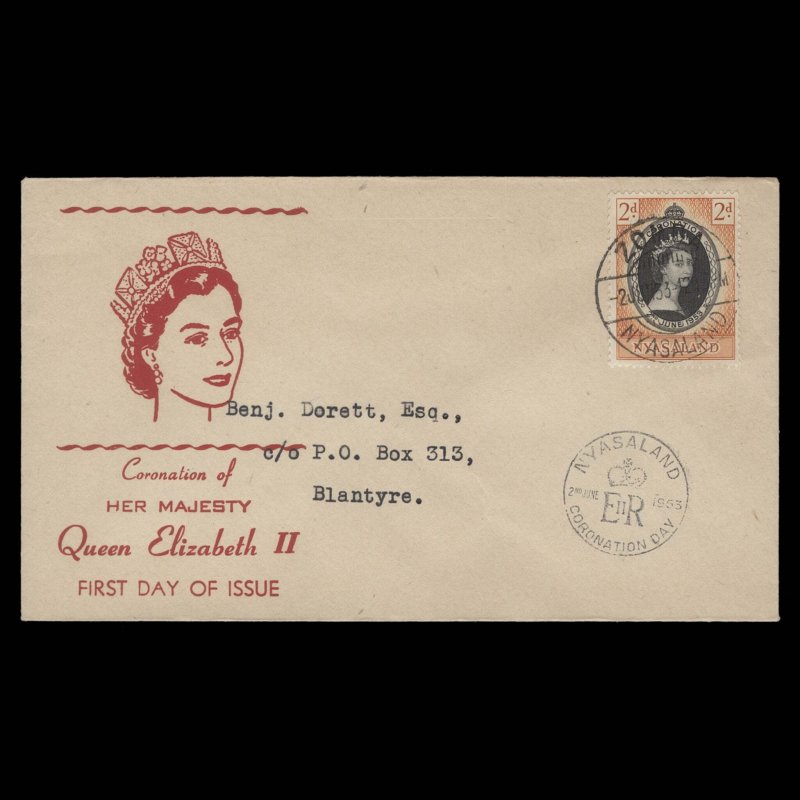 Coronation of
HER MAJESTY
Queen Elizabeth II
FIRST DAY OF ISSUE
Benj. Dorett, Esq.,
c/o P.O. Box 313,
Blantyre.
2d. 2d.
CORONATION
2ND JUNE 1953
NYASALAND
NYASALAND
NYASALAND
2ND JUNE EIIR 1953
CORONATION DAY